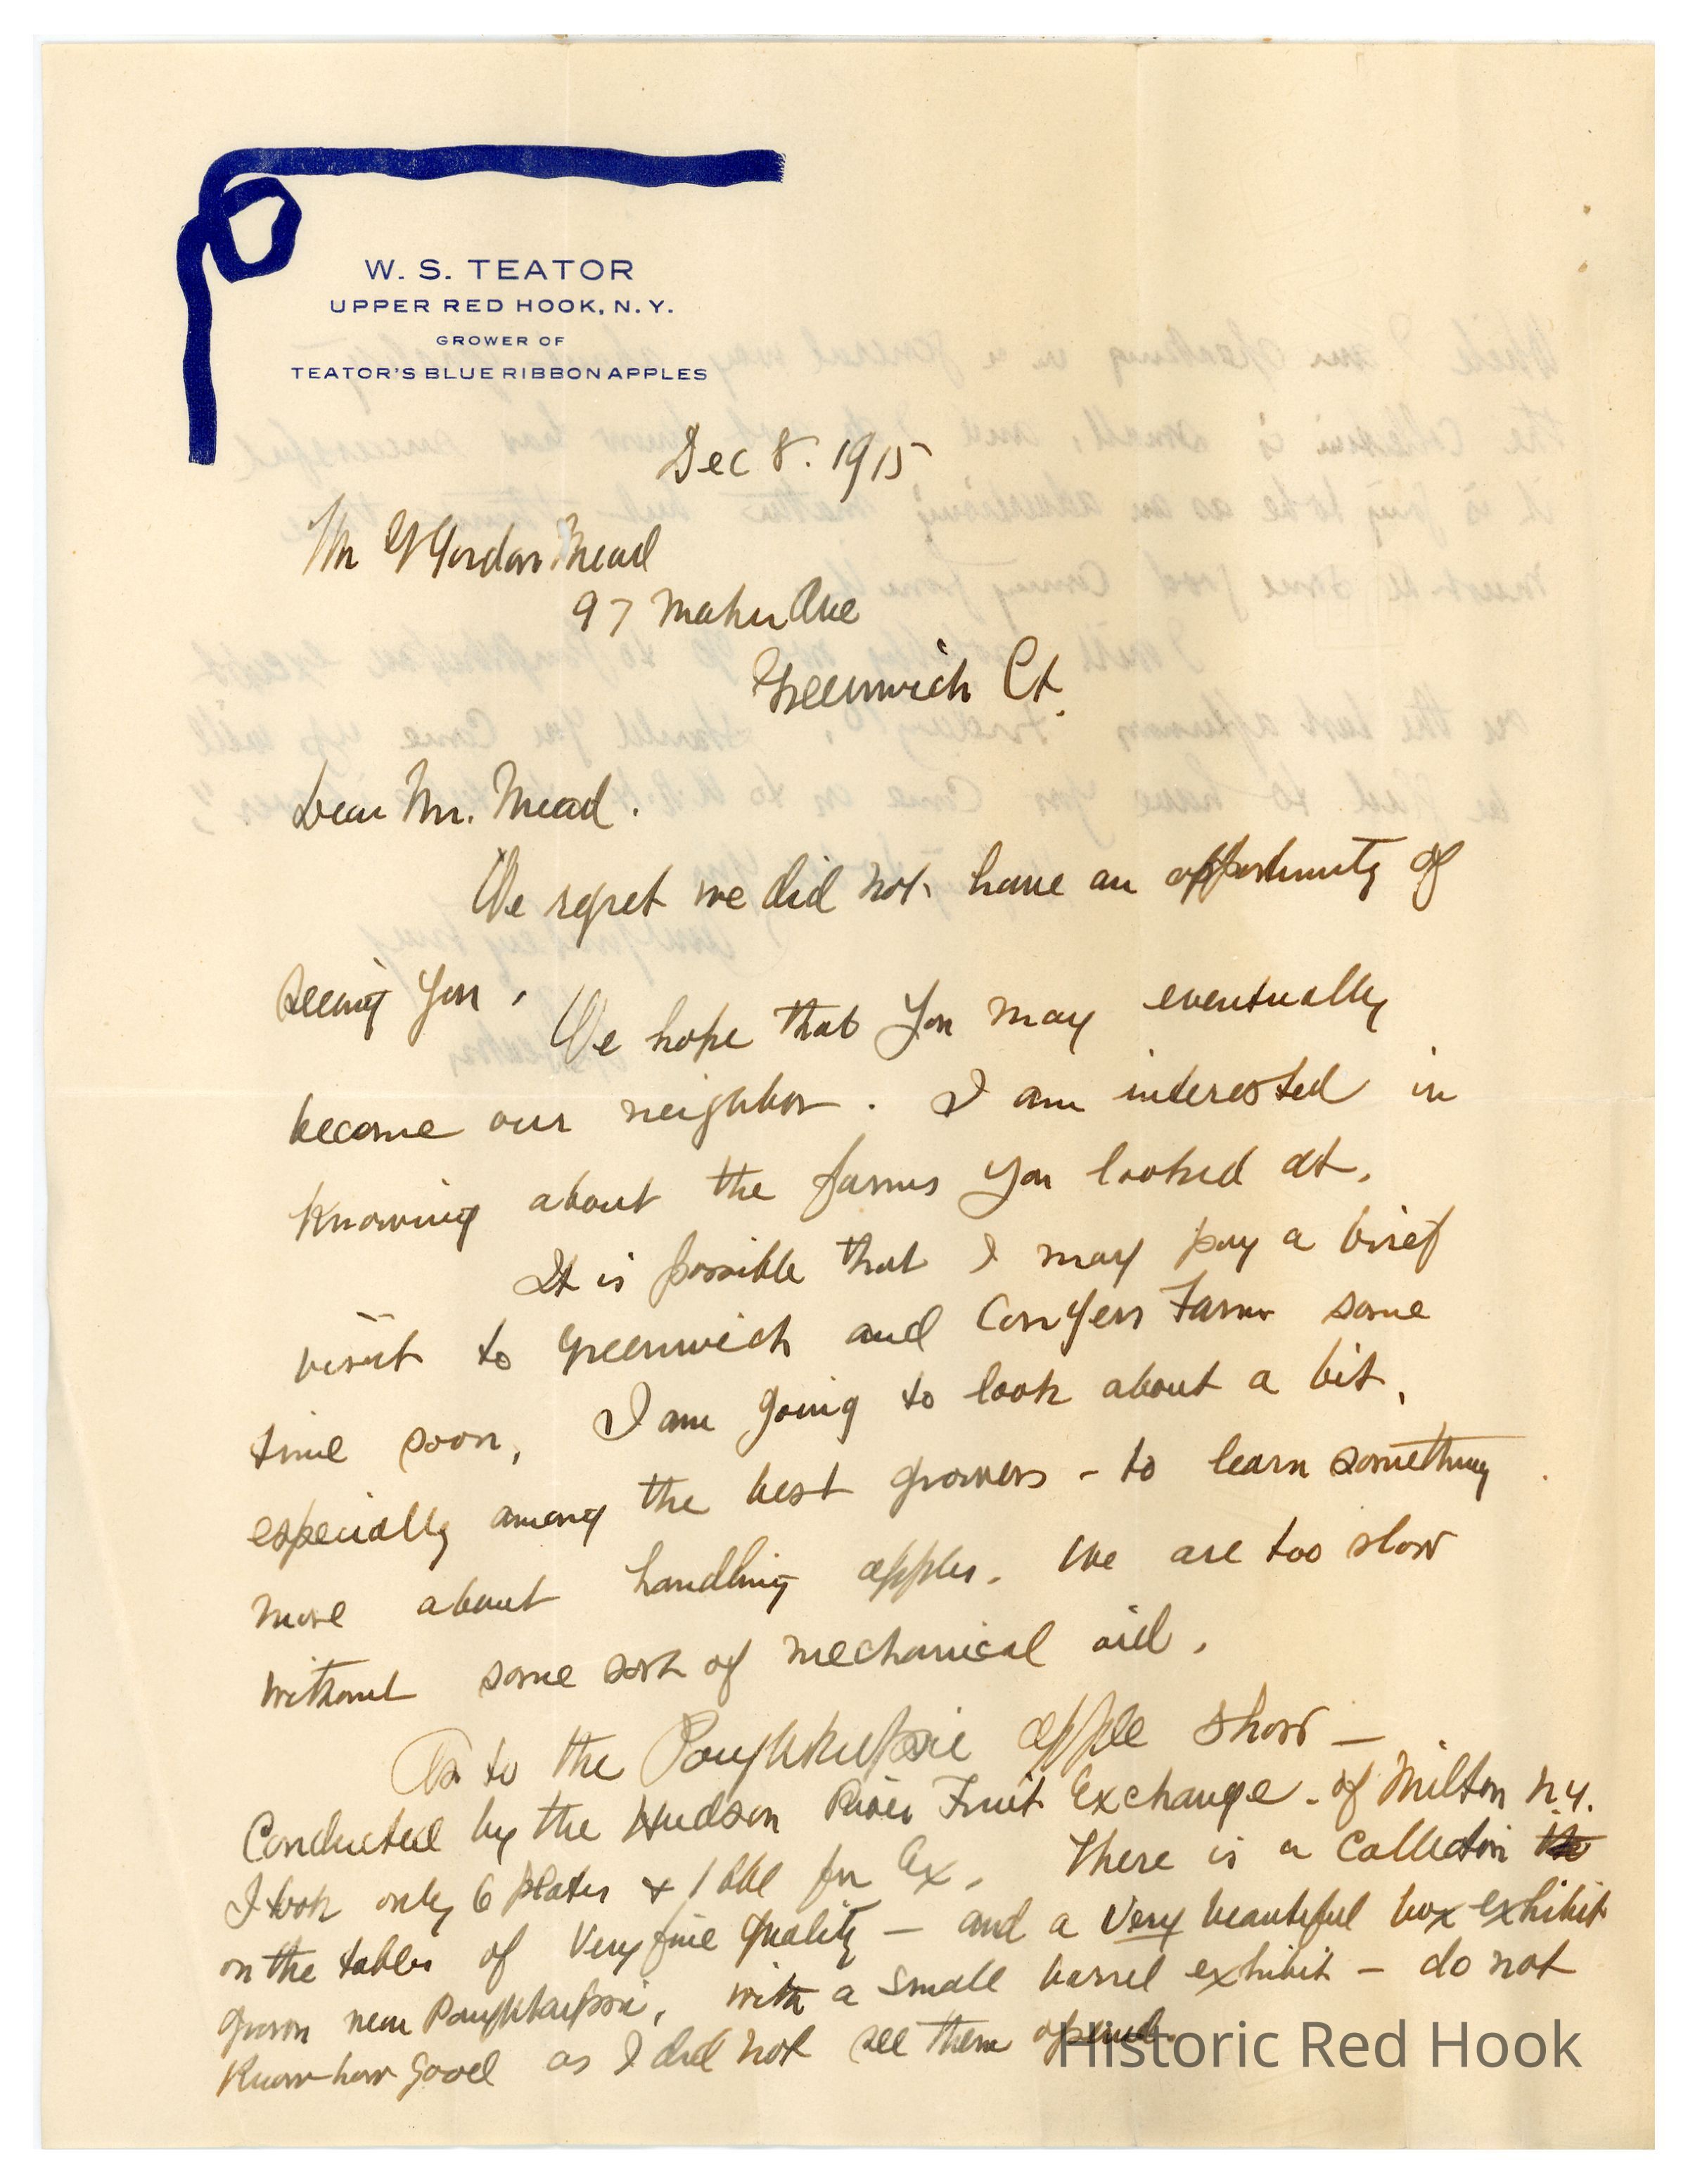 W. S. TEATOR
UPPER RED HOOK, N. Y.
GROWER OF
TEATOR'S BLUE RIBBON APPLES
Dec 8. 1915
Mr Gordon Mead
97 Ave
Greenwich Ct.
Dear Mr. Mead.
We regret we did not have an opportunity of
seeing you. We hope that you may eventually
become our neighbor. I am interested in
knowing about the farms you looked at.
It is possible that I may pay a brief
visit to Greenwich and Conyers Farm some
time soon, I am going to look about a bit,
especially among the best growers - to learn something
more about handling apples. We are too slow
without some sort of mechanical aid.
As to the Poughkeepsie apple show —
Conducted by the Hudson River Fruit Exchange - of Milton N.Y.
I took only 6 plates + 1 bbl for Ex. There is a Collection
on the tables of very fine quality — and a very beautiful box exhibit
grown near Poughkeepsie, with a small barrel exhibit — do not
know how good as I did not see them opened.
Historic Red Hook